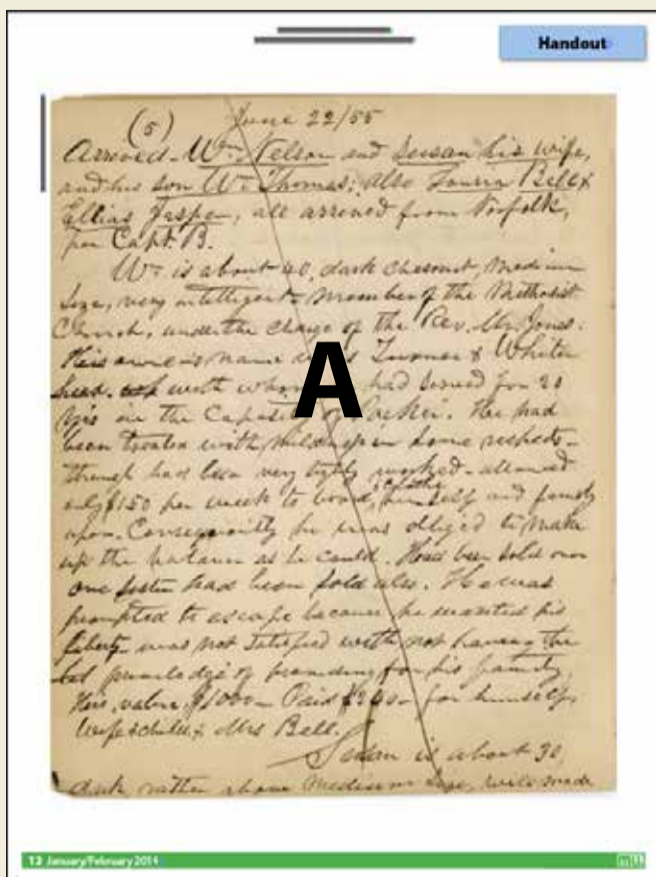 Handout
(5) June 22/55
Arrived - Wm Nelson and Susan his wife,
and his son Wm Thomas; also Louisa Bell &
Ellias Jasper, all arrived from Norfolk,
per Capt. B.
Wm is about 40, dark chesnut, Medium
Size, very intelligent - member of the Methodist
Church, under the charge of the Rev. Mr. Jones.
His name Turner & White
head. with had served for 20
yrs in the Capasity of Packer. He had
been treated with mildness in some respects -
though had been very tightly worked - allowed
only $1.50 per week to board, clothe himself and family
upon. Consequently he was obliged to make
up the balance as he could. Had been sold once
one sister had been sold also. He was
prompted to escape because he wanted his
liberty was not satisfied with not having the
priviledge of providing for his family.
His value $1000 - Paid for himself,
Wife & child & Mrs Bell.
Susan is about 30,
dark, rather above Medium Size, well made
A
12 January/February 2014